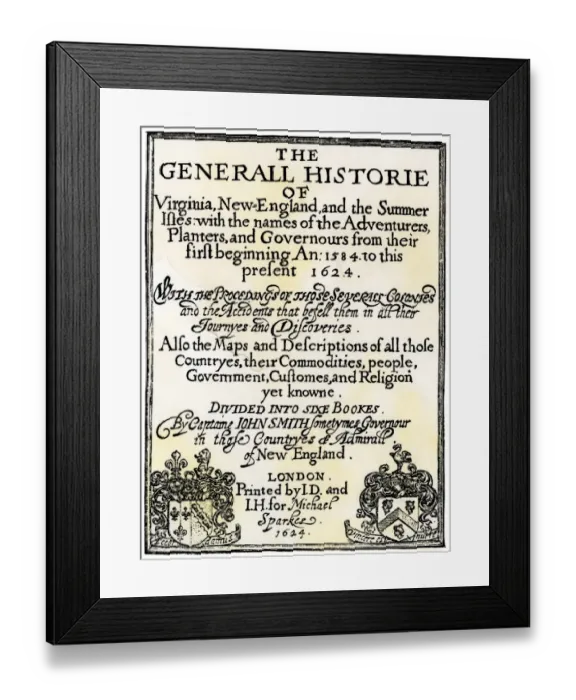 THE
GENERALL HISTORIE
OF
Virginia, New-England, and the Summer
Isles: with the names of the Adventurers,
Planters, and Governours from their
first beginning An: 1584. to this
present 1624.
WITH THE PROCEDINGS OF THOSE SEVERALL COLONIES
and the Accidents that befell them in all their
Journyes and Discoveries.
Also the Maps and Descriptions of all those
Countryes, their Commodities, people,
Government, Customes, and Religion
yet knowne.
DIVIDED INTO SIXE BOOKES.
By Captaine IOHN SMITH sometymes Governour
in those Countryes & Admirall
of New England.
LONDON.
Printed by I.D. and
I.H. for Michael
Sparkes.
1624.